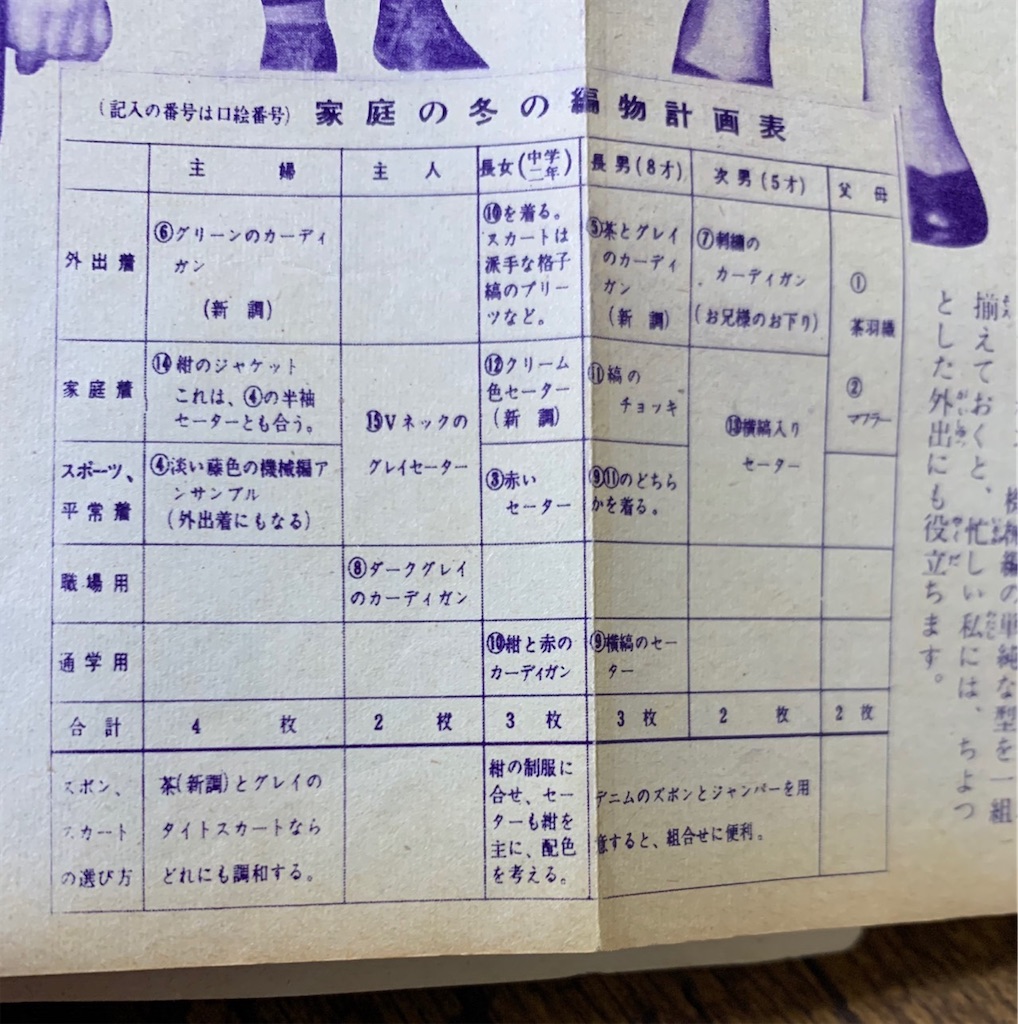 (記入の番号は口絵番号) 家庭の冬の編物計画表
主婦
主人
長女(中学二年)
長男(8才)
次男(5才)
父母
外出着
⑥グリーンのカーディ
ガン
(新調)
⑩を着る。
スカートは
派手な格子
縞のプリー
ツなど。
⑤茶とグレイ
のカーディ
ガン
(新調)
⑦刺繡の
カーディガン
(お兄様のお下り)
①
茶羽織
②
マフラー
家庭着
⑭紺のジャケット
これは、④の半袖
セーターとも合う。
⑮Vネックの
グレイセーター
⑫クリーム
色セーター
(新調)
⑪縞の
チョッキ
⑬横縞入り
セーター
スポーツ、
平常着
④淡い藤色の機械編ア
ンサンブル
(外出着にもなる)
③赤い
セーター
⑨⑪のどちら
かを着る。
職場用
⑧ダークグレイ
のカーディガン
通学用
⑩紺と赤の
カーディガン
⑨横縞のセー
ター
合計
4枚
2枚
3枚
3枚
2枚
2枚
ズボン、
スカート
の選び方
茶(新調)とグレイの
タイトスカートなら
どれにも調和する。
紺の制服に
合せ、セー
ターも紺を
主に、配色
を考える。
デニムのズボンとジャンパーを用
意すると、組合せに便利。
機械編の単純な型を一組
揃えておくと、忙しい私には、ちょっ
とした外出にも役立ちます。